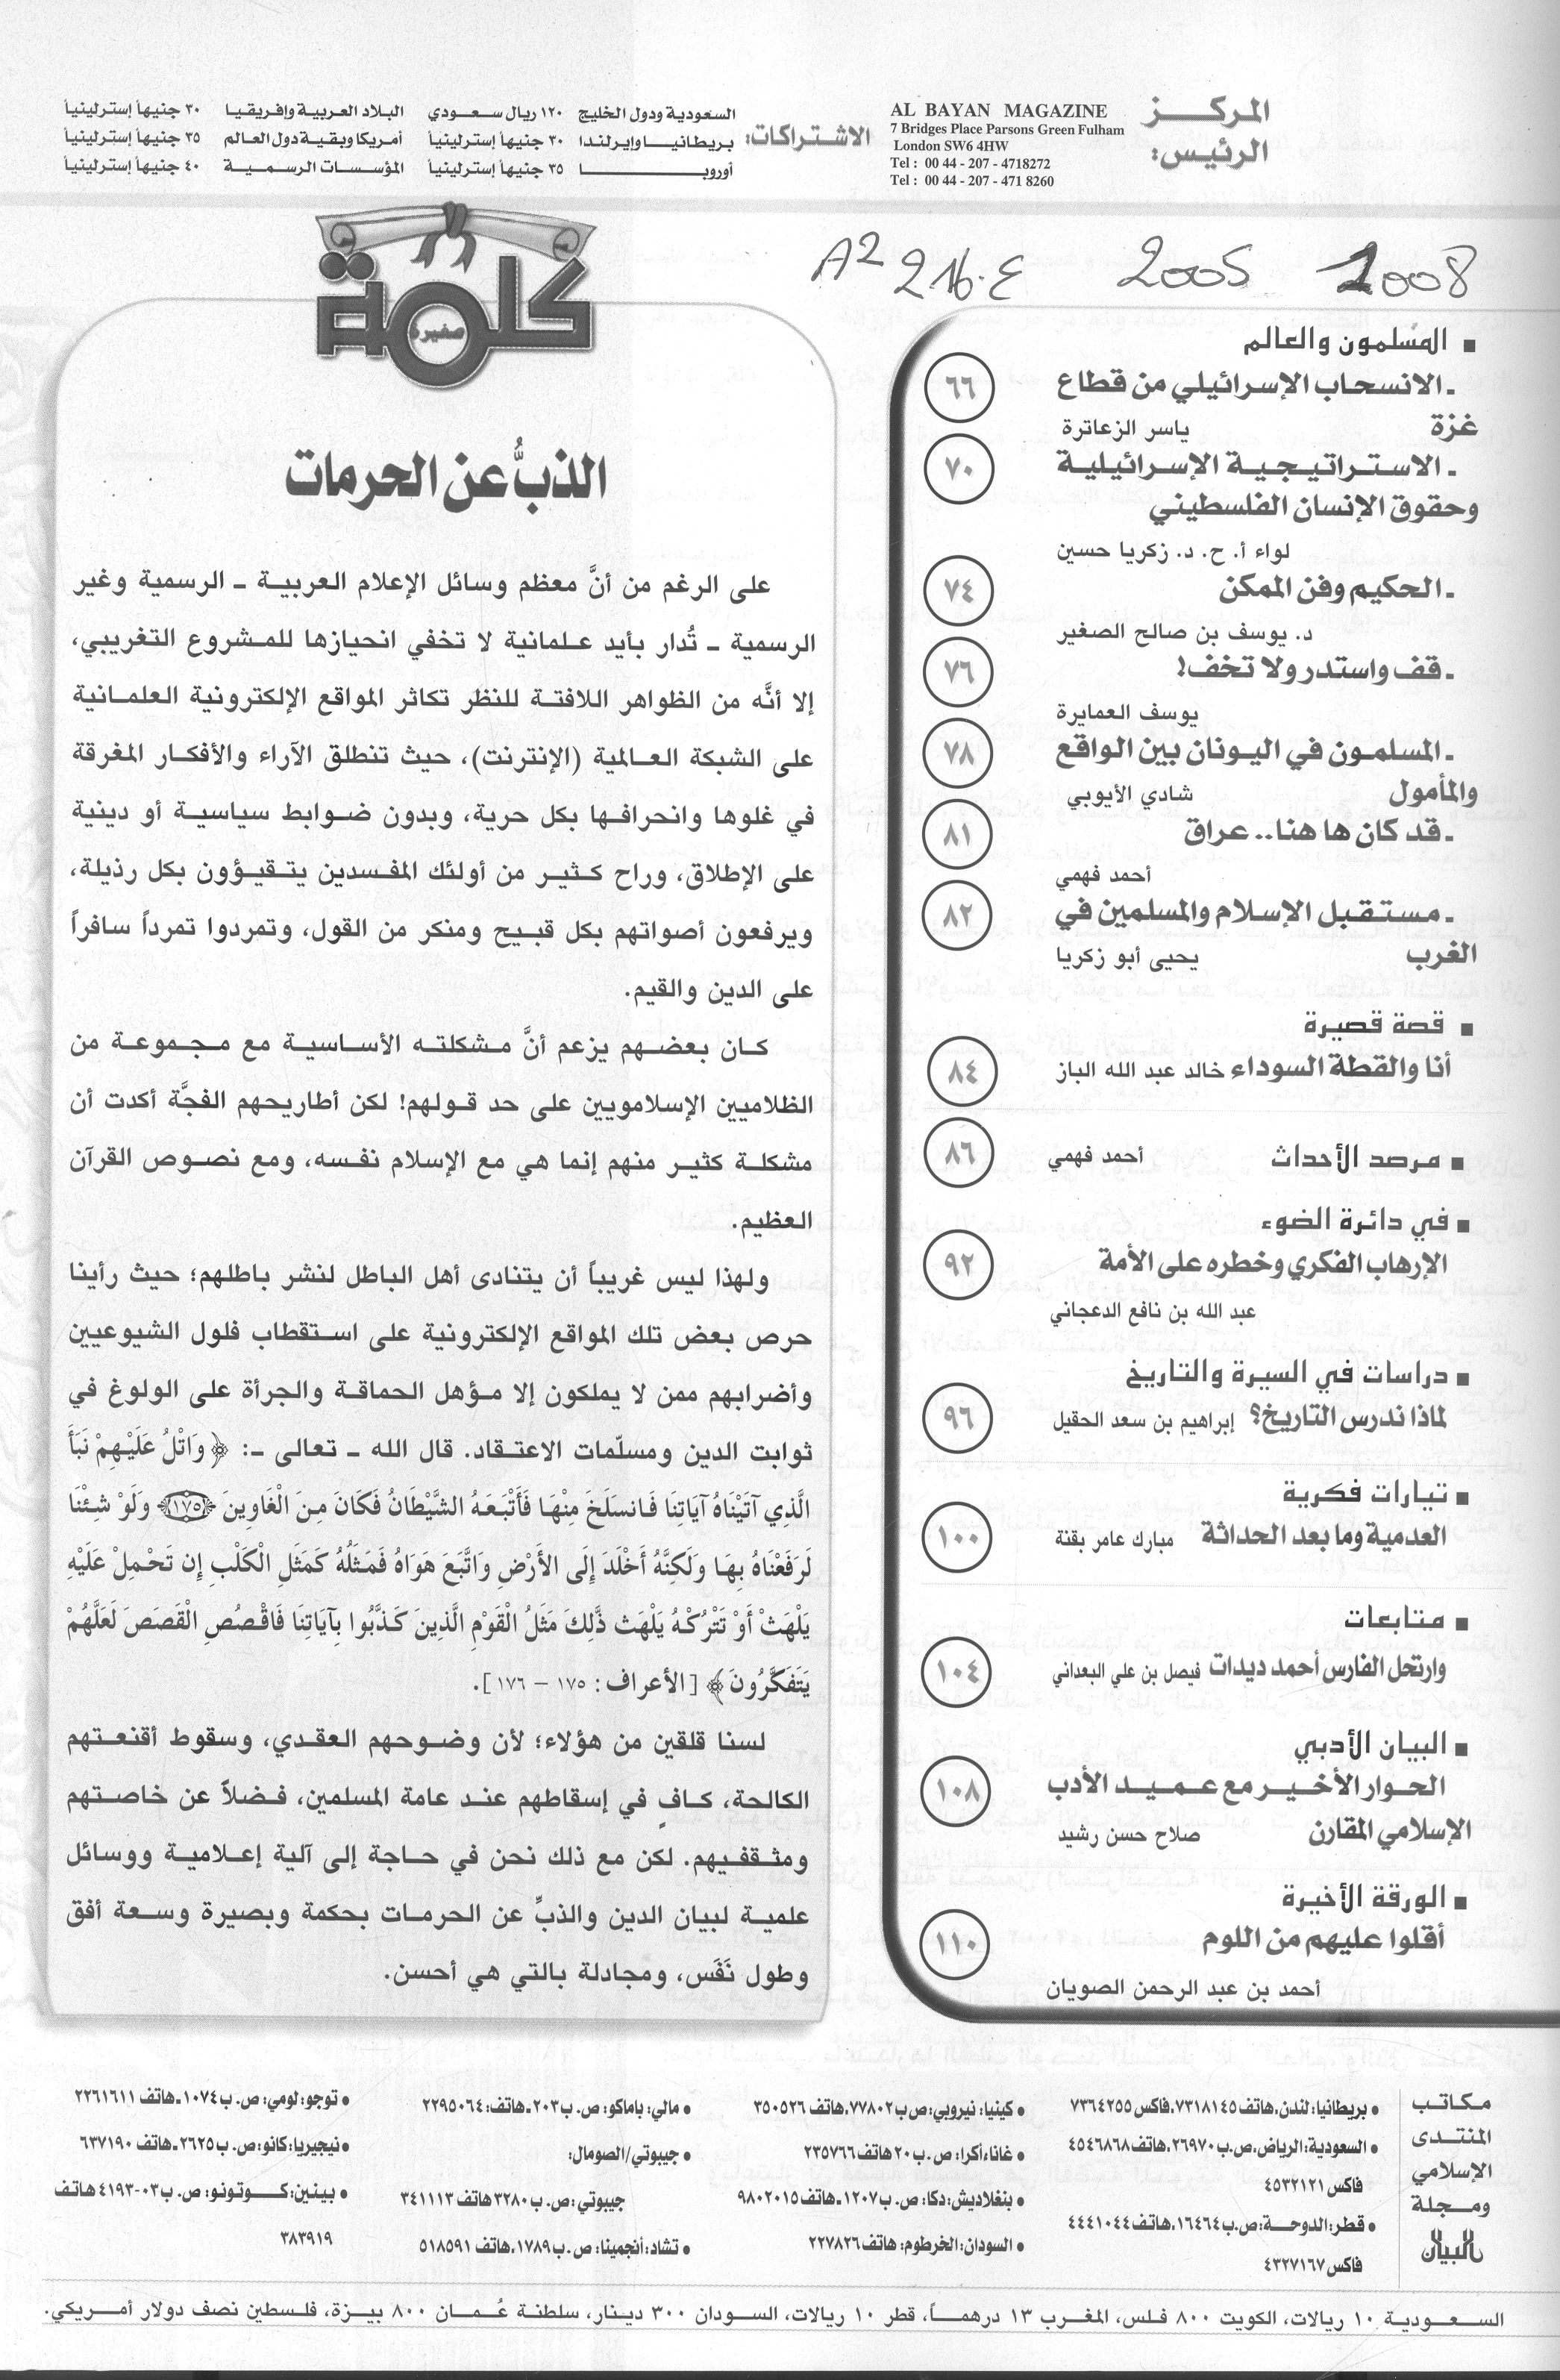 المركز
الرئيس:
AL BAYAN MAGAZINE
7 Bridges Place Parsons Green Fulham
London SW6 4HW
Tel : 00 44 - 207 - 4718272
Tel : 00 44 - 207 - 471 8260
الاشتراكات:
السعودية ودول الخليج ١٢٠ ريال سعودي
بريطانيا وإيرلندا ٣٠ جنيهاً إسترلينياً
أوروبا ٣٥ جنيهاً إسترلينياً
البلاد العربية وإفريقيا ٣٠ جنيهاً إسترلينياً
أمريكا وبقية دول العالم ٣٥ جنيهاً إسترلينياً
المؤسسات الرسمية ٤٠ جنيهاً إسترلينياً
2005
■ المسلمون والعالم
ـ الانسحاب الإسرائيلي من قطاع ٦٦
غزة ياسر الزعاترة
ـ الاستراتيجية الإسرائيلية ٧٠
وحقوق الإنسان الفلسطيني
لواء أ. ح. د. زكريا حسين
ـ الحكيم وفن الممكن ٧٤
د. يوسف بن صالح الصغير
ـ قف واستدر ولا تخف! ٧٦
يوسف العمايرة
ـ المسلمون في اليونان بين الواقع ٧٨
والمأمول شادي الأيوبي
ـ قد كان ها هنا.. عراق ٨١
أحمد فهمي
ـ مستقبل الإسلام والمسلمين في ٨٢
الغرب يحيى أبو زكريا
■ قصة قصيرة
أنا والقطة السوداء خالد عبد الله الباز ٨٤
■ مرصد الأحداث أحمد فهمي ٨٦
■ في دائرة الضوء
الإرهاب الفكري وخطره على الأمة ٩٢
عبد الله بن نافع الدعجاني
■ دراسات في السيرة والتاريخ
لماذا ندرس التاريخ؟ إبراهيم بن سعد الحقيل ٩٦
■ تيارات فكرية
العدمية وما بعد الحداثة مبارك عامر بقنة ١٠٠
■ متابعات
وارتحل الفارس أحمد ديدات فيصل بن علي البعداني ١٠٤
■ البيان الأدبي
الحوار الأخير مع عميد الأدب ١٠٨
الإسلامي المقارن صلاح حسن رشيد
■ الورقة الأخيرة
أقلوا عليهم من اللوم ١١٠
أحمد بن عبد الرحمن الصويان
كلمة
صغيرة
الذبُّ عن الحرمات
على الرغم من أنَّ معظم وسائل الإعلام العربية ـ الرسمية وغير
الرسمية ـ تُدار بأيد علمانية لا تخفي انحيازها للمشروع التغريبي،
إلا أنَّه من الظواهر اللافتة للنظر تكاثر المواقع الإلكترونية العلمانية
على الشبكة العالمية (الإنترنت)، حيث تنطلق الآراء والأفكار المغرقة
في غلوها وانحرافها بكل حرية، وبدون ضوابط سياسية أو دينية
على الإطلاق، وراح كثير من أولئك المفسدين يتقيؤون بكل رذيلة،
ويرفعون أصواتهم بكل قبيح ومنكر من القول، وتمردوا تمرداً سافراً
على الدين والقيم.
كان بعضهم يزعم أنَّ مشكلته الأساسية مع مجموعة من
الظلاميين الإسلامويين على حد قولهم! لكن أطاريحهم الفجَّة أكدت أن
مشكلة كثير منهم إنما هي مع الإسلام نفسه، ومع نصوص القرآن
العظيم.
ولهذا ليس غريباً أن يتنادى أهل الباطل لنشر باطلهم؛ حيث رأينا
حرص بعض تلك المواقع الإلكترونية على استقطاب فلول الشيوعيين
وأضرابهم ممن لا يملكون إلا مؤهل الحماقة والجرأة على الولوغ في
ثوابت الدين ومسلّمات الاعتقاد. قال الله ـ تعالى ـ: ﴿ وَاتْلُ عَلَيْهِمْ نَبَأَ
الَّذِي آتَيْنَاهُ آيَاتِنَا فَانسَلَخَ مِنْهَا فَأَتْبَعَهُ الشَّيْطَانُ فَكَانَ مِنَ الْغَاوِينَ ﴿١٧٥﴾ وَلَوْ شِئْنَا
لَرَفَعْنَاهُ بِهَا وَلَكِنَّهُ أَخْلَدَ إِلَى الأَرْضِ وَاتَّبَعَ هَوَاهُ فَمَثَلُهُ كَمَثَلِ الْكَلْبِ إِن تَحْمِلْ عَلَيْهِ
يَلْهَثْ أَوْ تَتْرُكْهُ يَلْهَث ذَّلِكَ مَثَلُ الْقَوْمِ الَّذِينَ كَذَّبُوا بِآيَاتِنَا فَاقْصُصِ الْقَصَصَ لَعَلَّهُمْ
يَتَفَكَّرُونَ ﴾ [الأعراف: ١٧٥ – ١٧٦].
لسنا قلقين من هؤلاء؛ لأن وضوحهم العقدي، وسقوط أقنعتهم
الكالحة، كافٍ في إسقاطهم عند عامة المسلمين، فضلاً عن خاصتهم
ومثقفيهم. لكن مع ذلك نحن في حاجة إلى آلية إعلامية ووسائل
علمية لبيان الدين والذبِّ عن الحرمات بحكمة وبصيرة وسعة أفق
وطول نَفَس، ومجادلة بالتي هي أحسن.
مكاتب
المنتدى
الإسلامي
ومجلة
البيان
● بريطانيا: لندن، هاتف ٧٣١٨١٤٥، فاكس ٧٣٦٤٢٥٥
● السعودية: الرياض، ص.ب ٢٦٩٧٠، هاتف ٤٥٤٦٨٦٨
فاكس ٤٥٣٢١٢١
● قطر: الدوحة: ص.ب ١٦٤٦٤، هاتف ٤٤٤١٠٤٤
فاكس ٤٣٢٧١٦٧
● كينيا: نيروبي: ص ب ٧٧٨٠٢، هاتف ٣٥٠٥٢٦
● غانا، أكرا: ص. ب ٢٠ هاتف ٢٣٥٧٦٦
● بنغلاديش: دكا: ص. ب ١٢٠٧ـ هاتف ٩٨٠٢٠١٥
● السودان: الخرطوم: هاتف ٢٢٧٨٢٦
● مالي: باماكو: ص. ب ٢٠٣ـ هاتف: ٢٢٩٥٠٦٤
● جيبوتي/الصومال:
جيبوتي: ص. ب ٣٢٨٠ هاتف ٣٤١١١٣
● تشاد: أنجمينا: ص. ب ١٧٨٩، هاتف ٥١٨٥٩١
● توجو: لومي: ص. ب ١٠٧٤ـ هاتف ٢٢٦١٦١١
● نيجيريا: كانو: ص. ب ٢٦٢٥ـ هاتف ٦٣٧١٩٠
● بينين: كوتونو: ص. ب ٠٣-٤١٩٣ هاتف
٣٨٣٩١٩
السعودية ١٠ ريالات، الكويت ٨٠٠ فلس، المغرب ١٣ درهماً، قطر ١٠ ريالات، السودان ٣٠٠ دينار، سلطنة عُمان ٨٠٠ بيزة، فلسطين نصف دولار أمريكي.